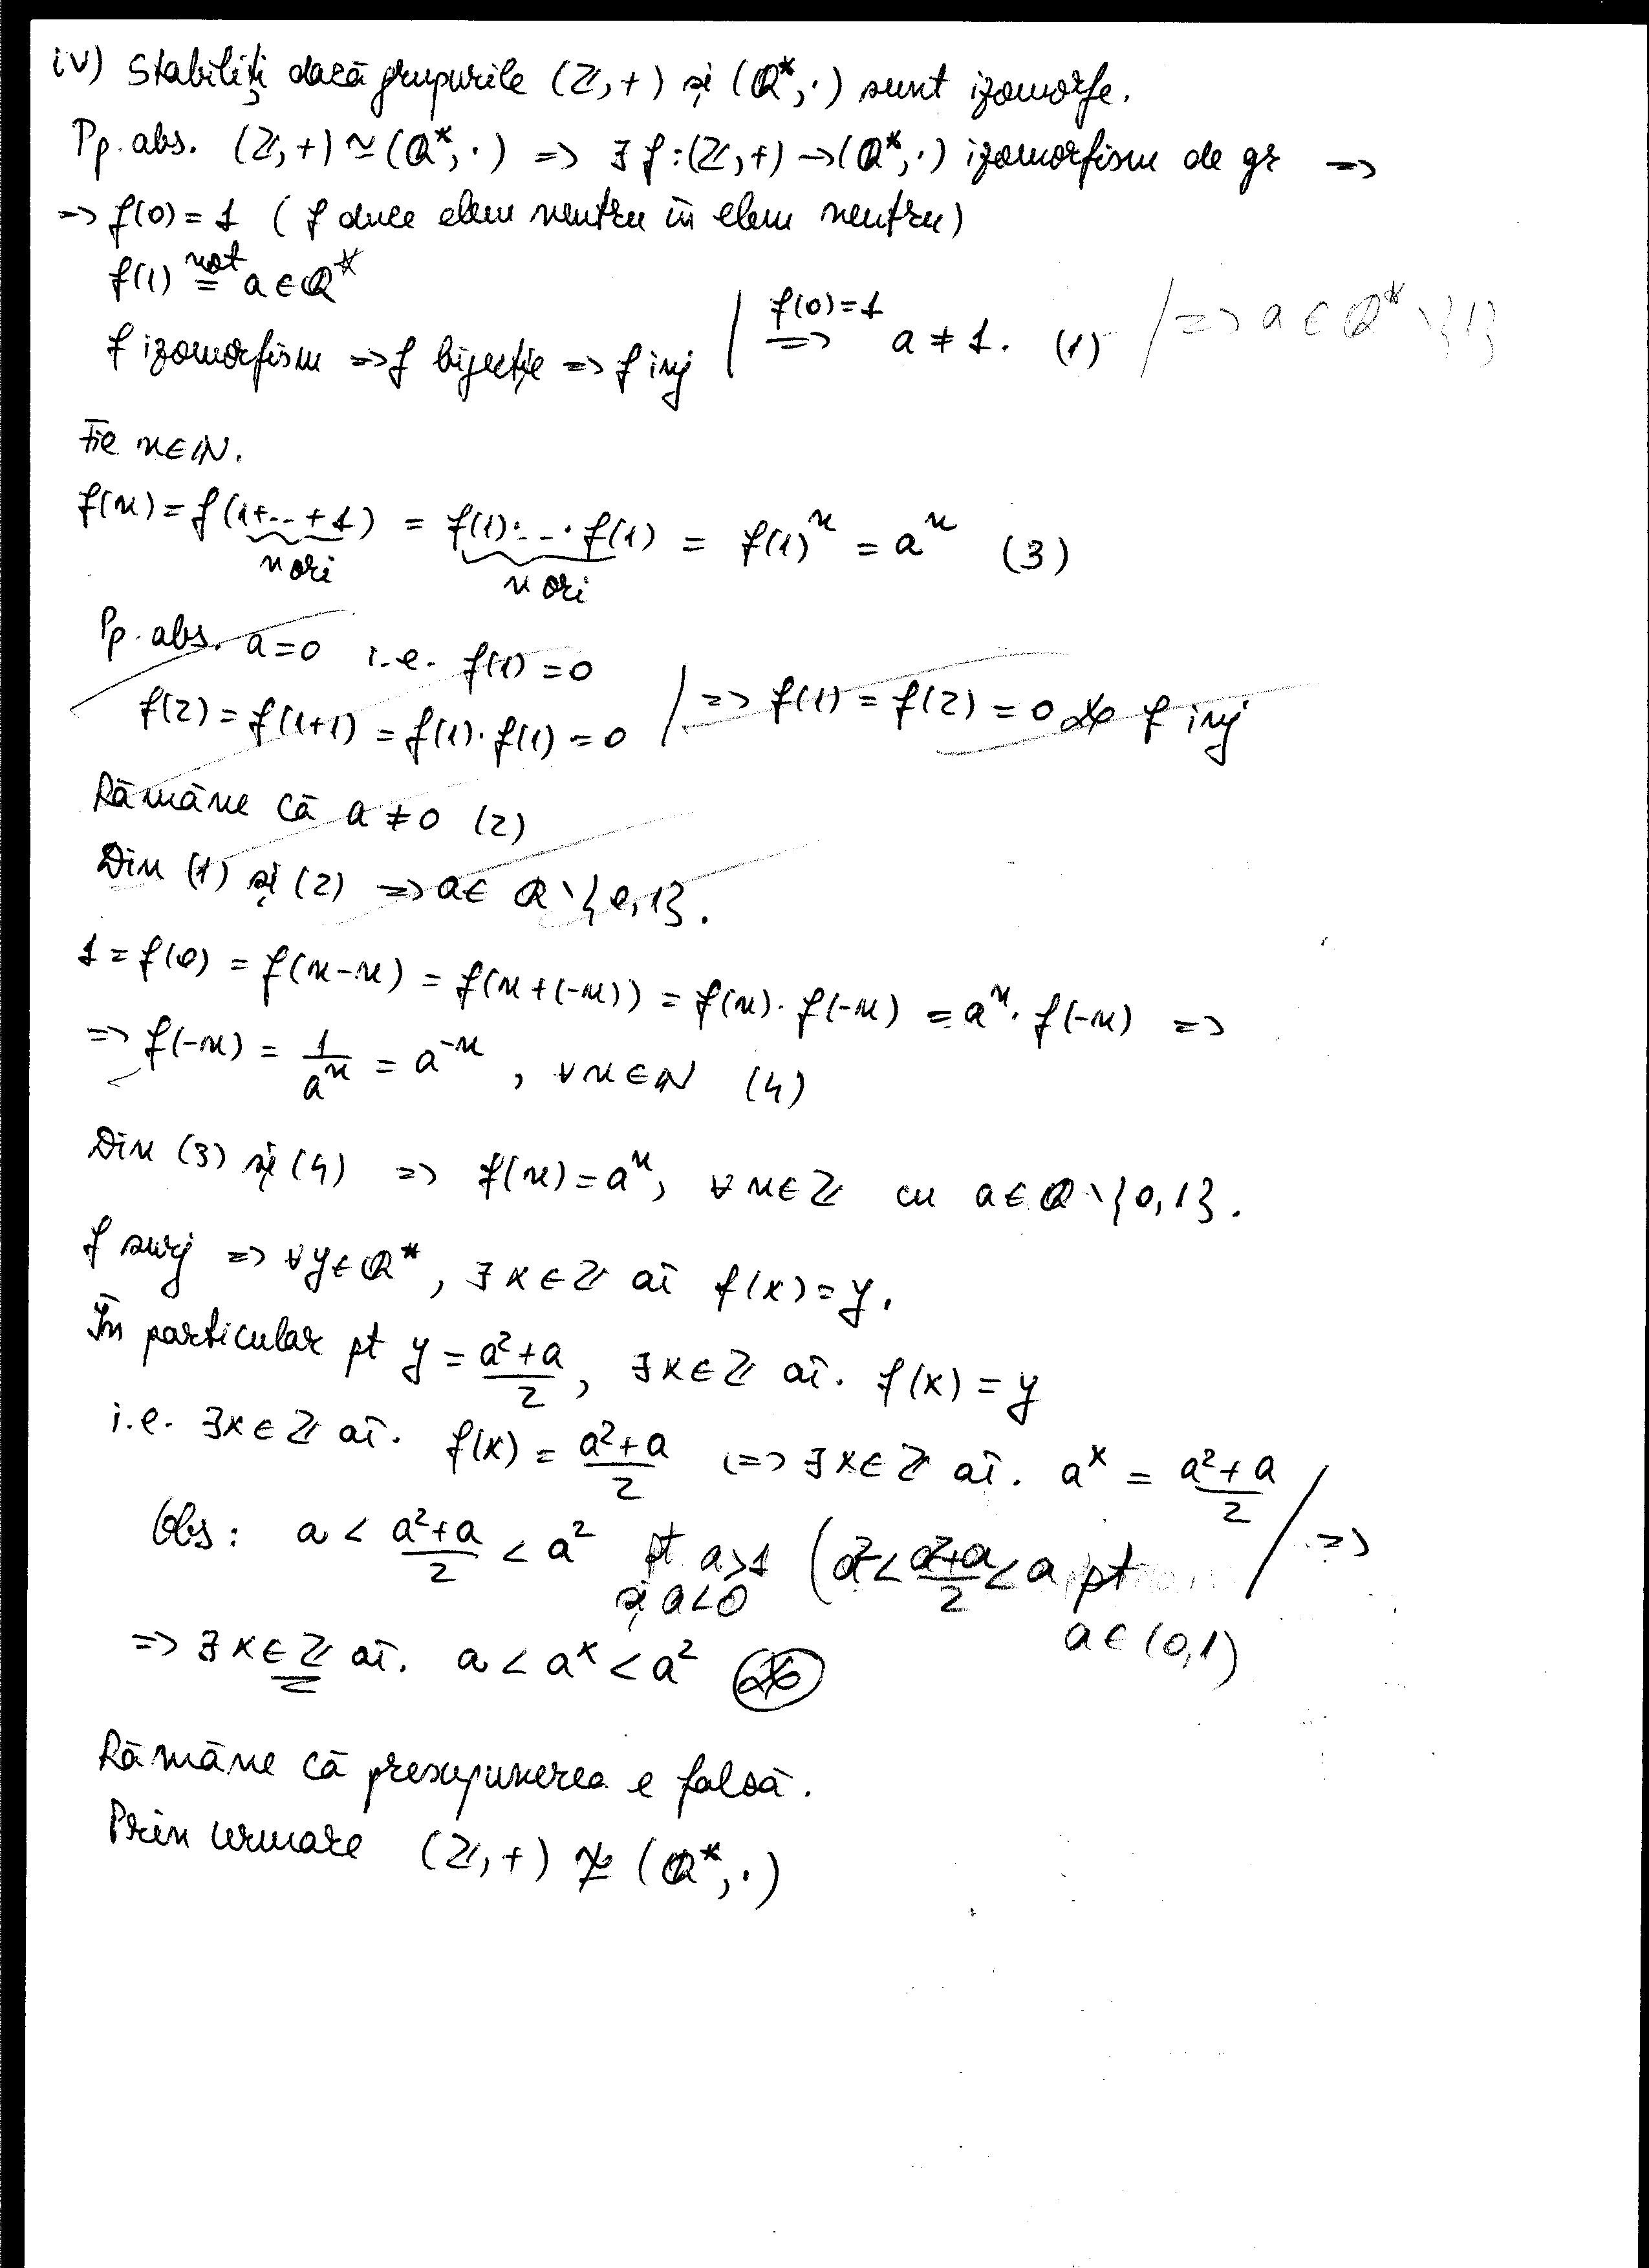 iv) Stabiliți dacă grupurile (ℤ,+) și (ℚ*,·) sunt izomorfe.
Pp. abs. (ℤ,+) ≃ (ℚ*,·) => ∃ f:(ℤ,+) → (ℚ*,·) izomorfism de gr =>
=> f(0) = 1 ( f duce elem neutru în elem neutru)
f(1) not= a ∈ ℚ*
f izomorfism => f bijecție => f inj | f(0)=1 => a ≠ 1. (1) / => a ∈ ℚ* \ {1}
Fie n∈ℕ.
f(n) = f(1+...+1) = f(1)·...·f(1) = f(1)ⁿ = aⁿ (3)
n ori n ori
Pp. abs. a=0 i.e. f(1)=0
f(2) = f(1+1) = f(1)·f(1) = 0 / => f(1) = f(2) = 0 ※ f inj
Rămâne că a ≠ 0 (2)
Din (1) și (2) => a∈ ℚ \ {0,1}.
1 = f(0) = f(n-n) = f(n+(-n)) = f(n)·f(-n) = aⁿ·f(-n) =>
=> f(-n) = 1/aⁿ = a⁻ⁿ, ∀n∈ℕ (4)
Din (3) și (4) => f(n) = aⁿ, ∀n∈ℤ cu a∈ℚ \ {0,1}.
f surj => ∀y∈ℚ*, ∃x∈ℤ aî f(x)=y.
În particular pt y = (a²+a)/2, ∃x∈ℤ aî. f(x) = y
i.e. ∃x∈ℤ aî. f(x) = (a²+a)/2 <=> ∃x∈ℤ aî. aˣ = (a²+a)/2 / =>
Obs: a < (a²+a)/2 < a² pt a>1 și a<0 (a² < (a²+a)/2 < a pt a∈(0,1)
=> ∃x∈ℤ aî. a < aˣ < a² ※
Rămâne că presupunerea e falsă.
Prin urmare (ℤ,+) ≄ (ℚ*,·)